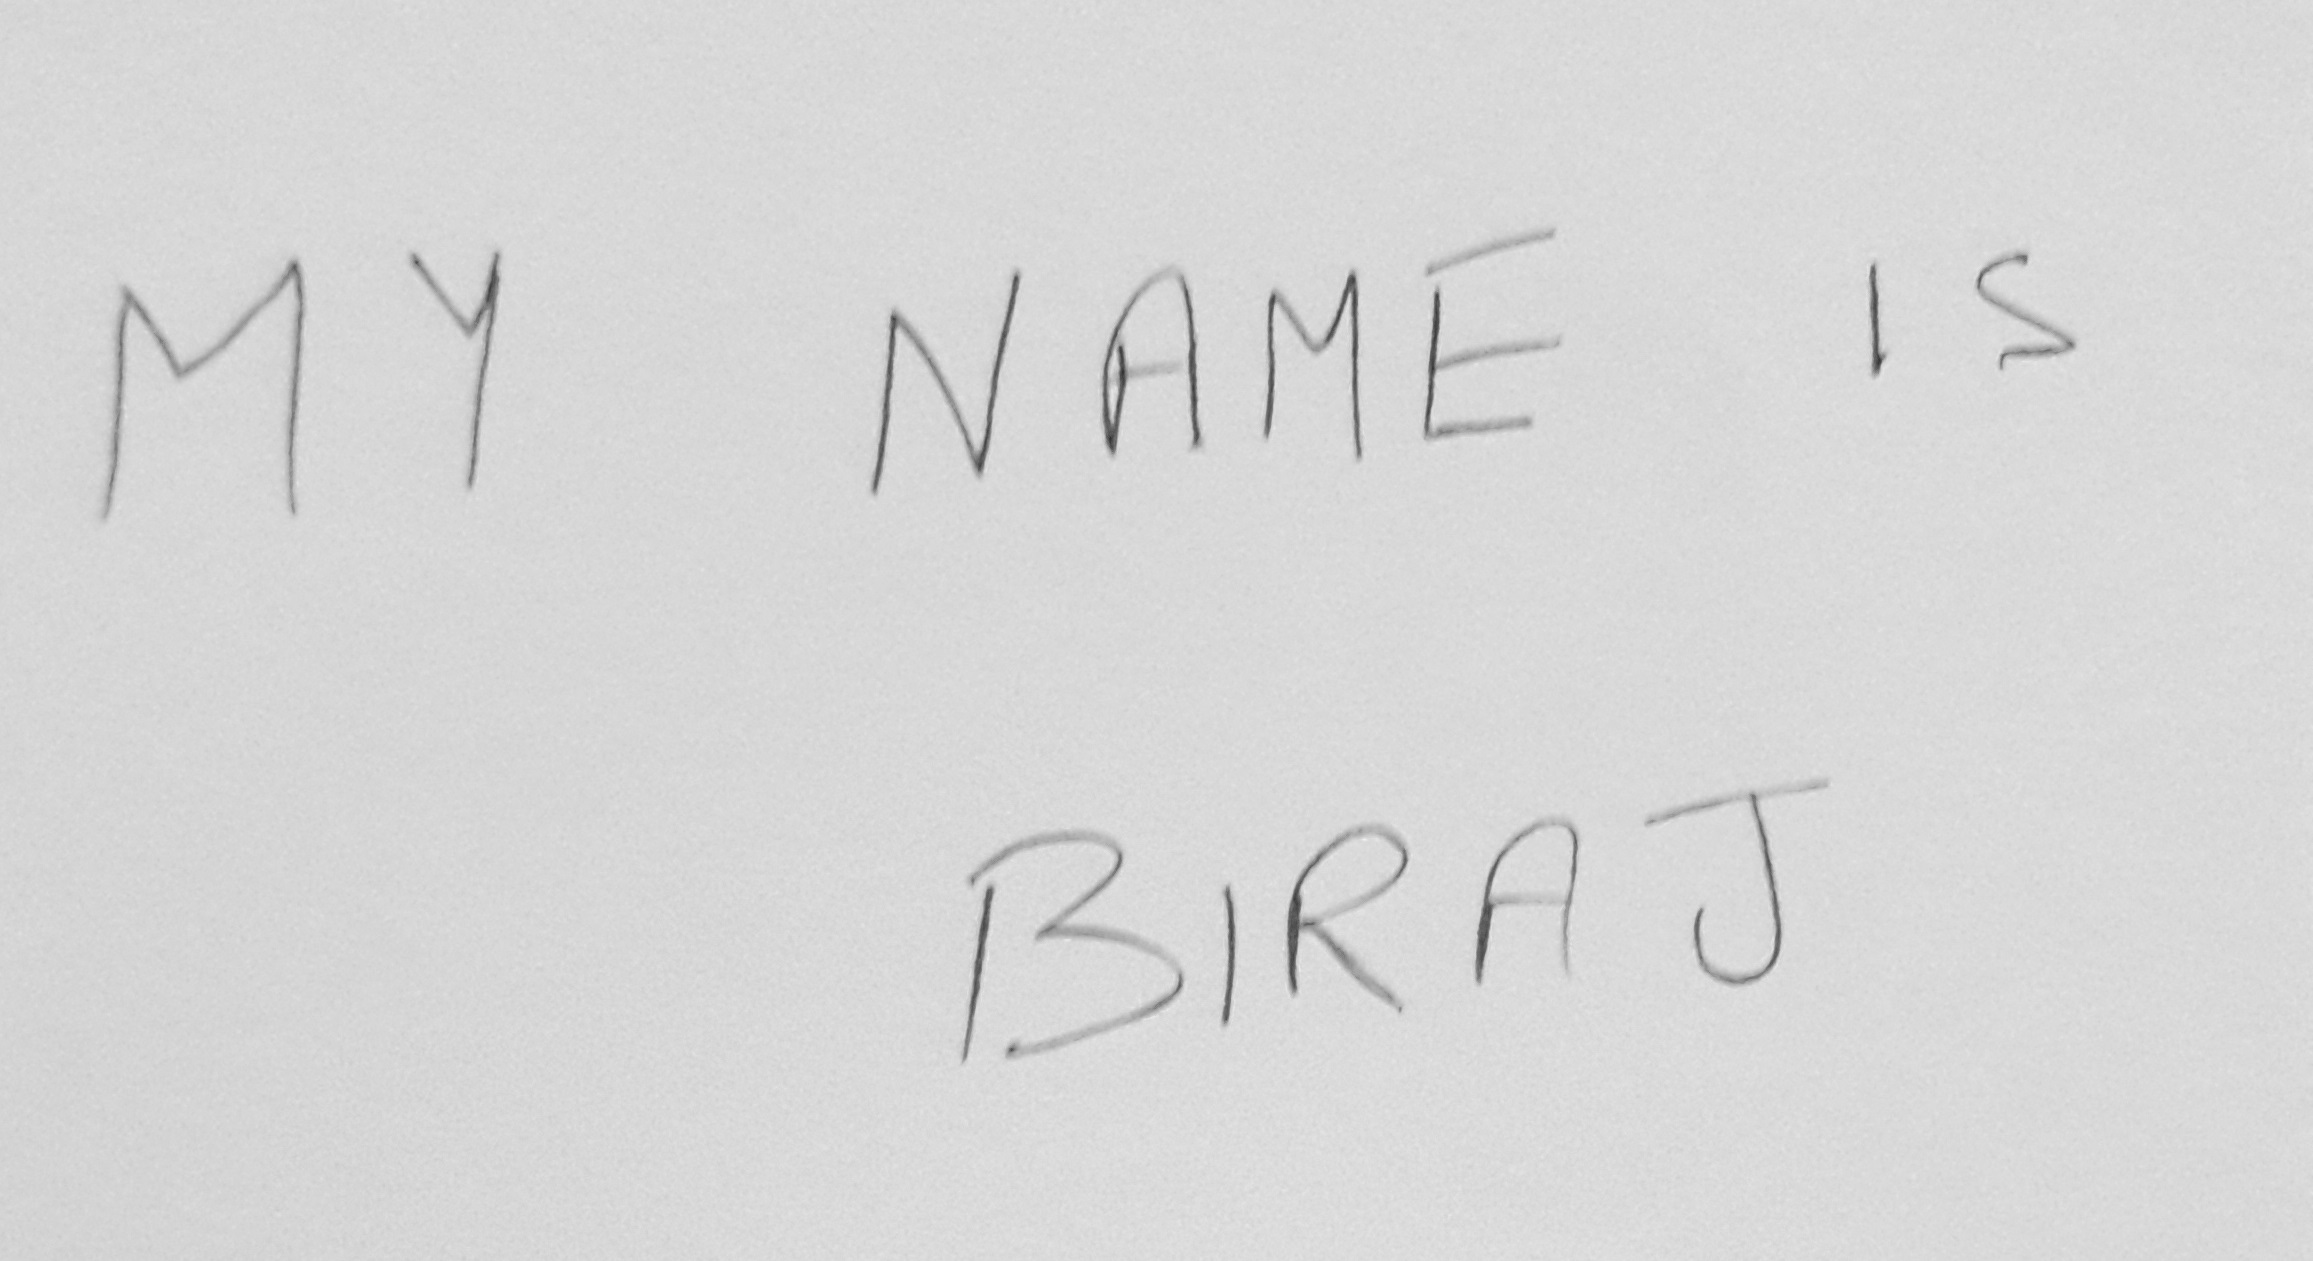 MY NAME IS
BIRAJ